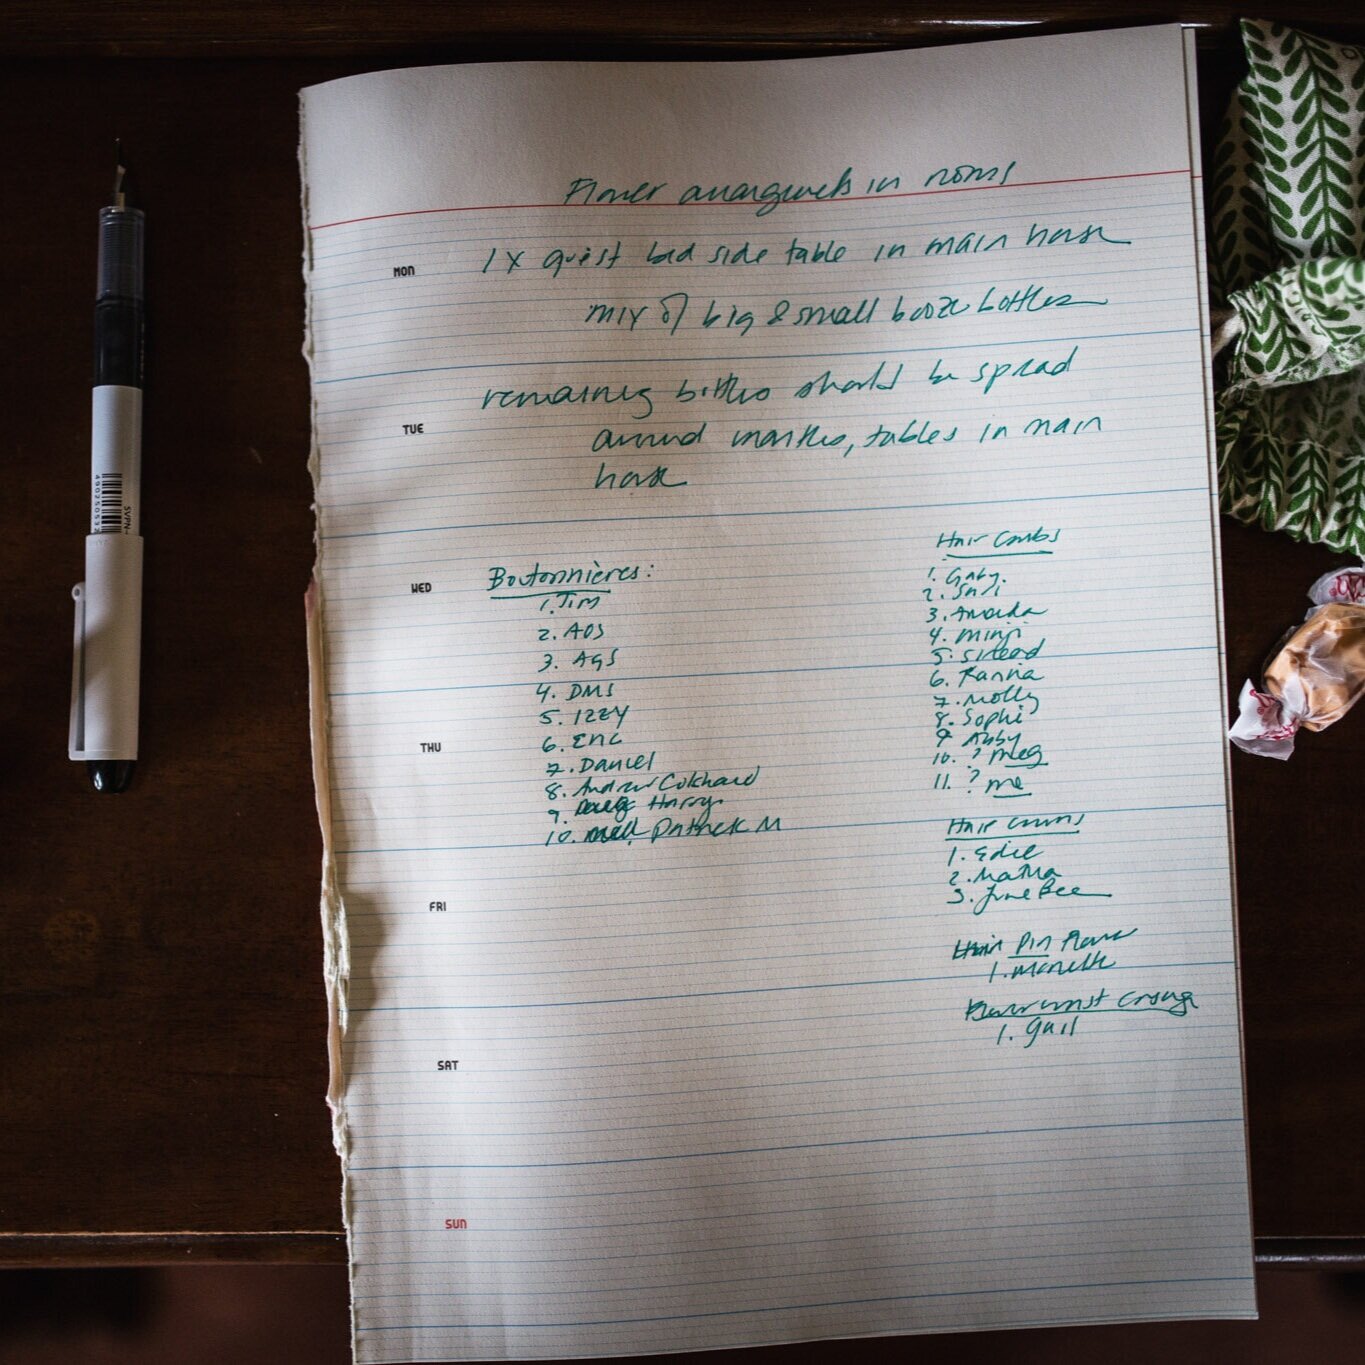 Flower arrangments in rooms
MON
1 x guest bed side table in main house
mix of big & small booze bottles
remaining bottles should be spread
TUE
around mantles, tables in main
house
WED
Boutonnières:
1. Tim
2. AOS
3. AGS
4. DMS
5. Izzy
6. Eric
7. Daniel
8. Andrew Colchard
9. Doug Harry
10. Patrick M
Hair Combs
1. Gaby.
2.
3. Amanda
4. Minji
5. Sinead
6. Karina
7. Molly
8. Sophi
9 Abby
10. ? Meg
11. ? me
Hair crowns
1. Edie
2. Matha
3. June Bee
Hair Pin Flower
1.
Flower wrist corsage
1. Gail
THU
FRI
SAT
SUN
SVPN-
490250532